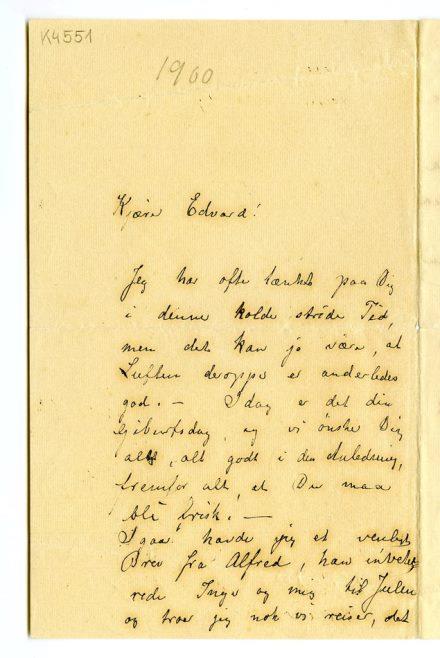 K4551
1900
Kjære Edvard!
Jeg har ofte tænkt paa Dig
i denne kolde strøde Tid,
men det kan jo være, at
Luften deroppe er anderledes
god. — Idag er det din
Geburtsdag, og vi ønske Dig
alt, alt godt i den Anledning,
fremfor alt, at Du maa
bli frisk. —
Igaar havde jeg et venligt
Brev fra Alfred, han invite-
rede Inger og mig til Julen
og tror jeg nok vi reiser, det